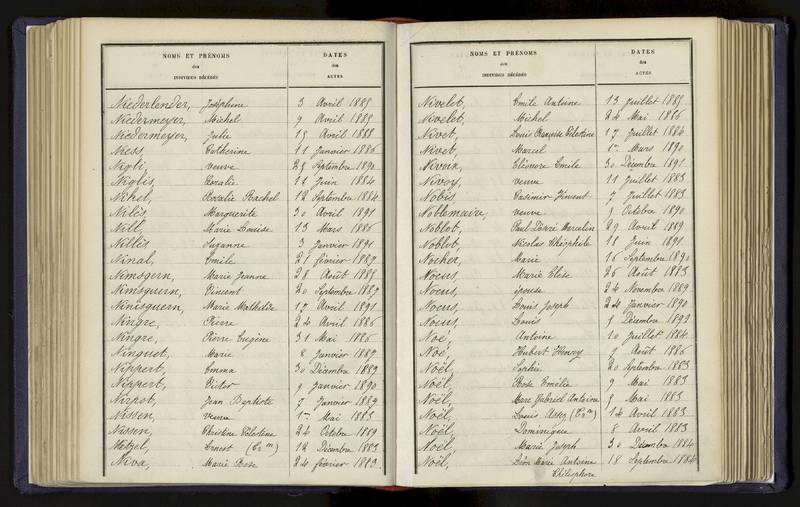 NOMS ET PRÉNOMS
des
INDIVIDUS DÉCÉDÉS
DATES
des
ACTES
Niederlender, Joséphine 3 Avril 1885
Niedermeyer, Michel 9 Avril 1885
Niedermeyer, Julie 15 Avril 1888
Niess, Catherine 11 Janvier 1886
Nigli, veuve 25 Septembre 1890
Niglis, Coralie 11 Juin 1884
Nihel, Rosalie Rachel 12 Septembre 1884
Nilès, Marguerite 30 Avril 1891
Nill, Marie Louise 13 Mars 1886
Nillès Suzanne 3 Janvier 1891
Ninal, Emile 21 février 1889
Nimsgern, Marie Jeanne 28 Août 1885
Nimsguern, Vincent 20 Septembre 1889
Ninisguern, Marie Mathilde 17 Avril 1891
Ningre, Pierre 24 Avril 1886
Ningre, Pierre Eugène 31 Mai 1886
Ninguet, Marie 8 Janvier 1889
Nippert, Emma 30 Décembre 1889
Nippert, Victor 9 Janvier 1890
Nirpot, Jean Baptiste 7 Janvier 1889
Nissen, veuve 1er Mai 1883
Nissen, Christine Célestine 24 Octobre 1889
Nitzel, Ernest (Crm) 12 Décembre 1883
Niva, Marie Rose 24 février 1883
NOMS ET PRÉNOMS
des
INDIVIDUS DÉCÉDÉS
DATES
des
ACTES
Nivelet, Emile Antoine 13 Juillet 1885
Nivelet, Michel 24 Mai 1886
Nivet, Louis François Célestine 17 Juillet 1884
Nivet, Marcel 1er Mars 1890
Nivoix, Eléonore Emile 30 Décembre 1891
Nivoy, veuve 11 Juillet 1883
Nobis, Casimir Vincent 7 Juillet 1883
Noblemaire, veuve 5 Octobre 1890
Noblot, Paul Désiré Marcelin 29 Avril 1889
Noblot, Nicolas Théophile 18 Juin 1891
Nocher, Marie 16 Septembre 1890
Nocus, Marie Elise 26 Août 1883
Nocus, épouse 24 Novembre 1889
Nocus, Louis Joseph 24 Janvier 1890
Nocus, Louis 5 Décembre 1892
Noé, Antoine 10 Juillet 1884
Noé, Hubert Henry 9 Août 1886
Noël, Sophie 20 Septembre 1883
Noël, Rose Emélie 9 Mai 1883
Noël, Marc Gabriel Antoine 5 Mai 1883
Noël, Louis (Crm) 14 Avril 1883
Noël, Dominique 8 Avril 1883
Noël Marie Joseph 30 Décembre 1884
Noël, Léon Marie Antoine 18 Septembre 1884
Télesphore